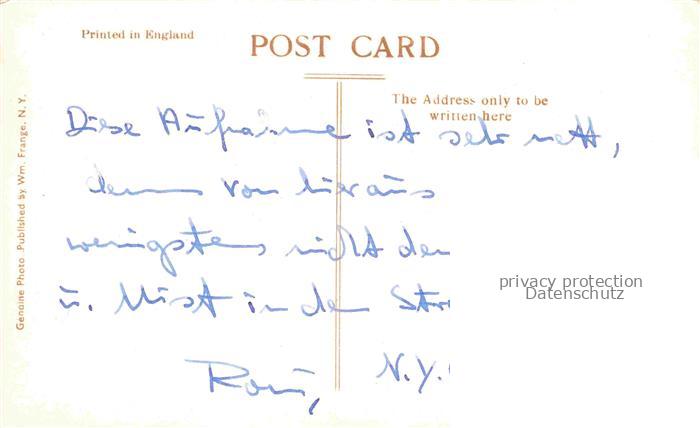 Printed in England
POST CARD
The Address only to be
written here
Genuine Photo. Published by Wm. Frange. N. Y.
Diese Aufnahme ist sehr nett,
denn von hier aus
wenigstens nicht den
u. Mist in den Str
N.Y.
privacy protection
Datenschutz